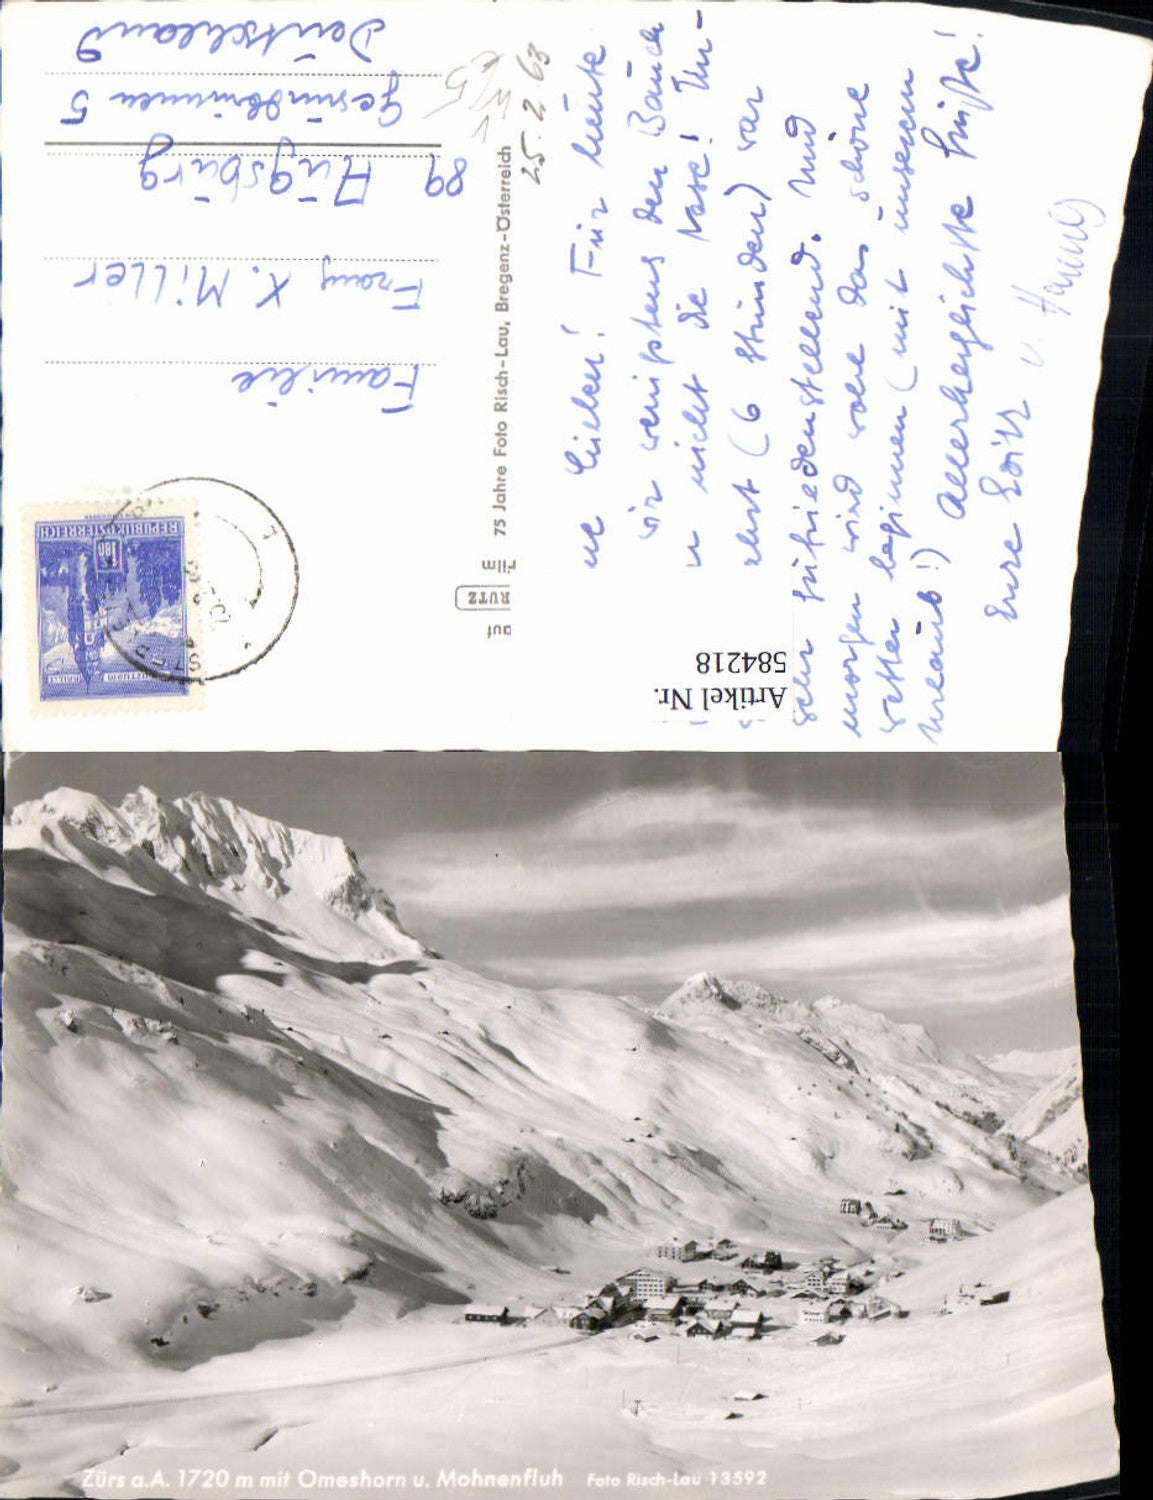 25. 2. 63
ne Lieben! Für heute
wir wenigstens den Bauch
u nicht die Nase! Un-
(6 Stunden) war
sehr zufriedenstellend. Und
morgen wird wohl das schöne
Wetter beginnen (mit unserem
Urlaub!) Allerherzlichste Grüße!
Eure
u.
Familie
Franz X. Miller
89 Augsburg
Gesundbrunnen 5
Deutschland
75 Jahre Foto Risch-Lau, Bregenz-Österreich
auf
RUTZ
REPUBLIK ÖSTERREICH
1.80
Artikel Nr.
584218
Zürs a.A. 1720 m mit Omeshorn u. Mohnenfluh Foto Risch-Lau 13592